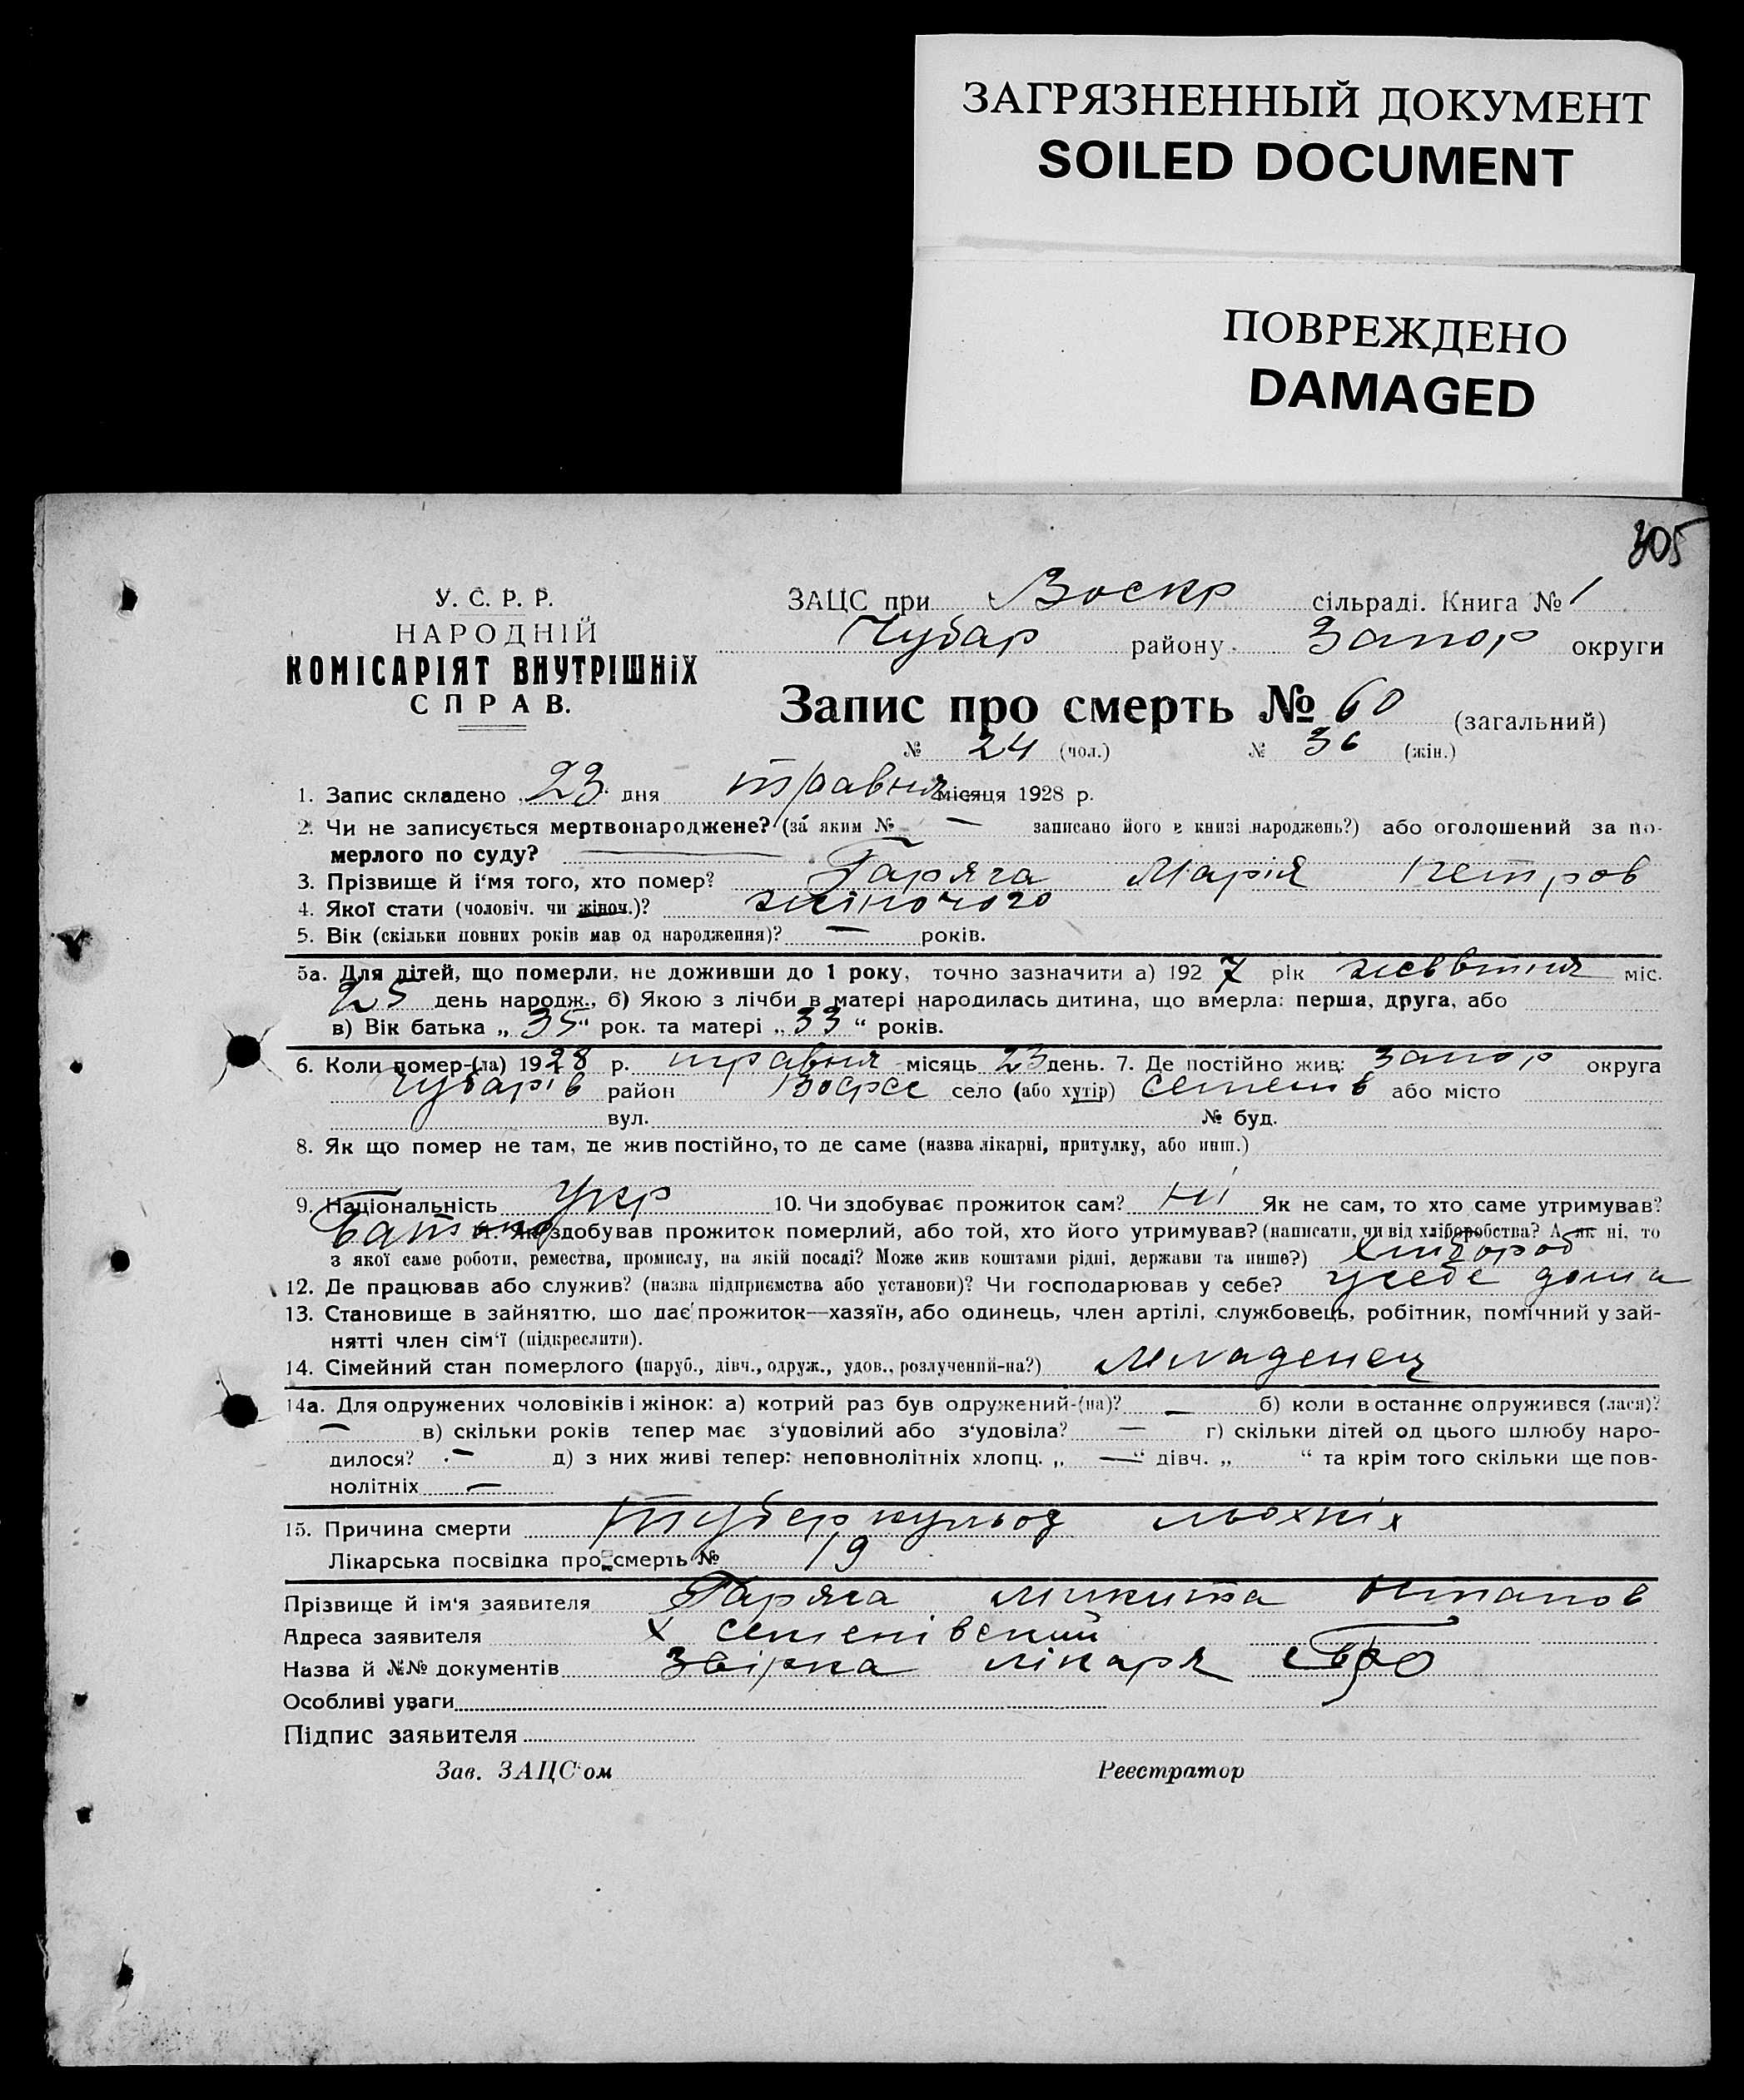 ЗАГРЯЗНЕННЫЙ ДОКУМЕНТ
SOILED DOCUMENT
ПОВРЕЖДЕНО
DAMAGED
305
У. С. Р. Р.
НАРОДНІЙ
КОМІСАРІЯТ ВНУТРІШНІХ
СПРАВ.
ЗАЦС при Воскр сільраді. Книга № 1
Чубар району Запор округи
Запис про смерть № 60 (загальний)
№ 24 (чол.) № 36 (жін.)
1. Запис складено 23 дня травня місяця 1928 р.
2. Чи не записується мертвонароджене? (за яким № — записано його в книзі народжень?) або оголошений за по-
мерлого по суду? —
3. Прізвище й і'мя того, хто помер? Гаряча Марія Петров
4. Якої стати (чоловіч. чи жіноч.)? жіночого
5. Вік (скільки повних років мав од народження)? — років.
5а. Для дітей, що померли, не доживши до 1 року, точно зазначити а) 1927 рік жовтня міс.
25 день народж., б) Якою з лічби в матері народилась дитина, що вмерла: перша, друга, або
в) Вік батька „ 35 “ рок. та матері „ 33 “ років.
6. Коли помер-(ла) 1928 р. травня місяць 23 день. 7. Де постійно жив: Запор округа
Чубарів район село (або хутір) або місто
вул. № буд.
8. Як що помер не там, де жив постійно, то де саме (назва лікарні, притулку, або инш.)
9. Національність Укр 10. Чи здобуває прожиток сам? ні Як не сам, то хто саме утримував?
Батько 11. Як здобував прожиток померлий, або той, хто його утримував? (написати, чи від хліборобства? А як ні, то
з якої саме роботи, ремества, промислу, на якій посаді? Може жив коштами рідні, держави та инше?) Хлібороб
12. Де працював або служив? (назва підприємства або установи)? Чи господарював у себе? усебе дома
13. Становище в зайняттю, що дає прожиток—хазяїн, або одинець, член артілі, службовець, робітник, помічний у зай-
нятті член сім'ї (підкреслити).
14. Сімейний стан померлого (паруб., дівч., одруж., удов., розлучений-на?) Младенец
14а. Для одружених чоловіків і жінок: а) котрий раз був одружений-(на)? — б) коли в останнє одружився (лася)?
— в) скільки років тепер має з'удовілий або з'удовіла? — г) скільки дітей од цього шлюбу наро-
дилося? — д) з них живі тепер: неповнолітніх хлопц. „ — “ дівч. „ “ та крім того скільки ще пов-
нолітніх —
15. Причина смерти Туберкульоз льохніх
Лікарська посвідка про смерть № 19
Прізвище й ім'я заявителя Гаряча Микита
Адреса заявителя х Семенівский
Назва й №№ документів Звірка лікаря
Особливі уваги
Підпис заявителя
Зав. ЗАЦС'ом Реєстратор